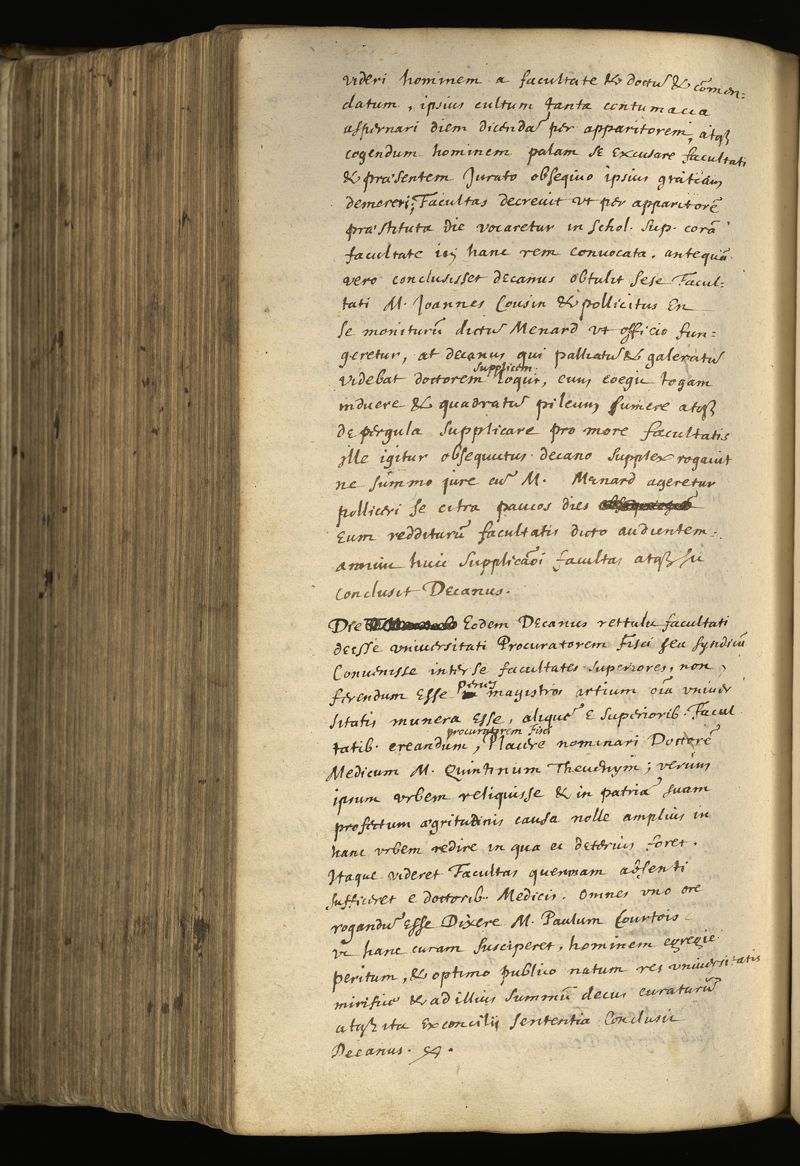 videri hominem a facultate & doctū & cōmen-
datum, ipsius cultum tanta contumacia
aspernari diem dicendā per apparitorem, atqꝫ
cogendum hominem palam se excusare facultati
& præsentem Jurato obsequio ipsius gratiam
demereri; Facultas decrevit vt per apparitorē
præstituta die vocaretur in schol. sup. corā
facultate in hanc rem convocata. antequā
vero conclusisset decanus obtulit sese Facul-
tati M. Joannes Cousin & pollicitus En
se moniturū dictū Menard vt officio fun-
geretur, at decanus qui palliatū & galeratū
videbat doctorem supplicem loqui, eum coegit togam
induere & quadratū pileum sumere atqꝫ
de pergula supplicare pro more facultatis
ille igitur obsequutus decano supplex rogavit
ne summo jure cū M. Menard ageretur
polliceri se citra paucos dies
Eum redditurū facultatis dicto audientem.
annuit huic supplicāoi facultas atqꝫ sic
conclusit Decanus.
Die Eodem Decanus rettulit facultati
deesse vniversitati Procuratorem Fisci seu syndicū
Convenisse inter se facultates superiores, non
ferendum esse penes magistros artium oīa vniver
sitatis munera esse, aliquē e superiorib. Facul
tatib. creandum procuratorem Fisci, Placere nominari Doctorē
Medicum M. Quintinum Thevenym; verum
ipsum vrbem reliquisse & in patriā suam
profectum ægritudinis causa nolle amplius in
hanc vrbem redire in qua ei deterius foret.
Itaque videret Facultas quemnam absenti
sufficeret e doctorib. Medicis. Omnes vno ore
rogandū esse Dixere M. Paulum Courtois
vt hanc curam susciperet, hominem egregie
peritum, & optimo publico natum res vniversitatis
mirifice & ad illius summū decus curaturū
atqꝫ ita Ex concilij sententia Conclusit
Decanus.